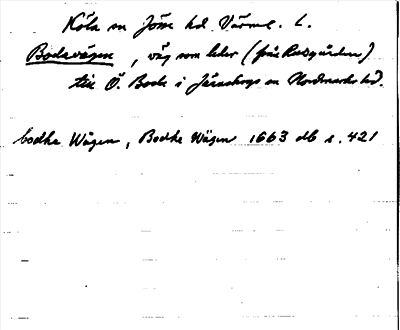 Köla sn Jösse hd Värml. l.
Bodavägen, väg som leder (från Rudsgården)
till Ö. Boda i Järnskogs sn Nordmarks hd.
bodha Wägen, Bodha Wägen 1663 db s. 421